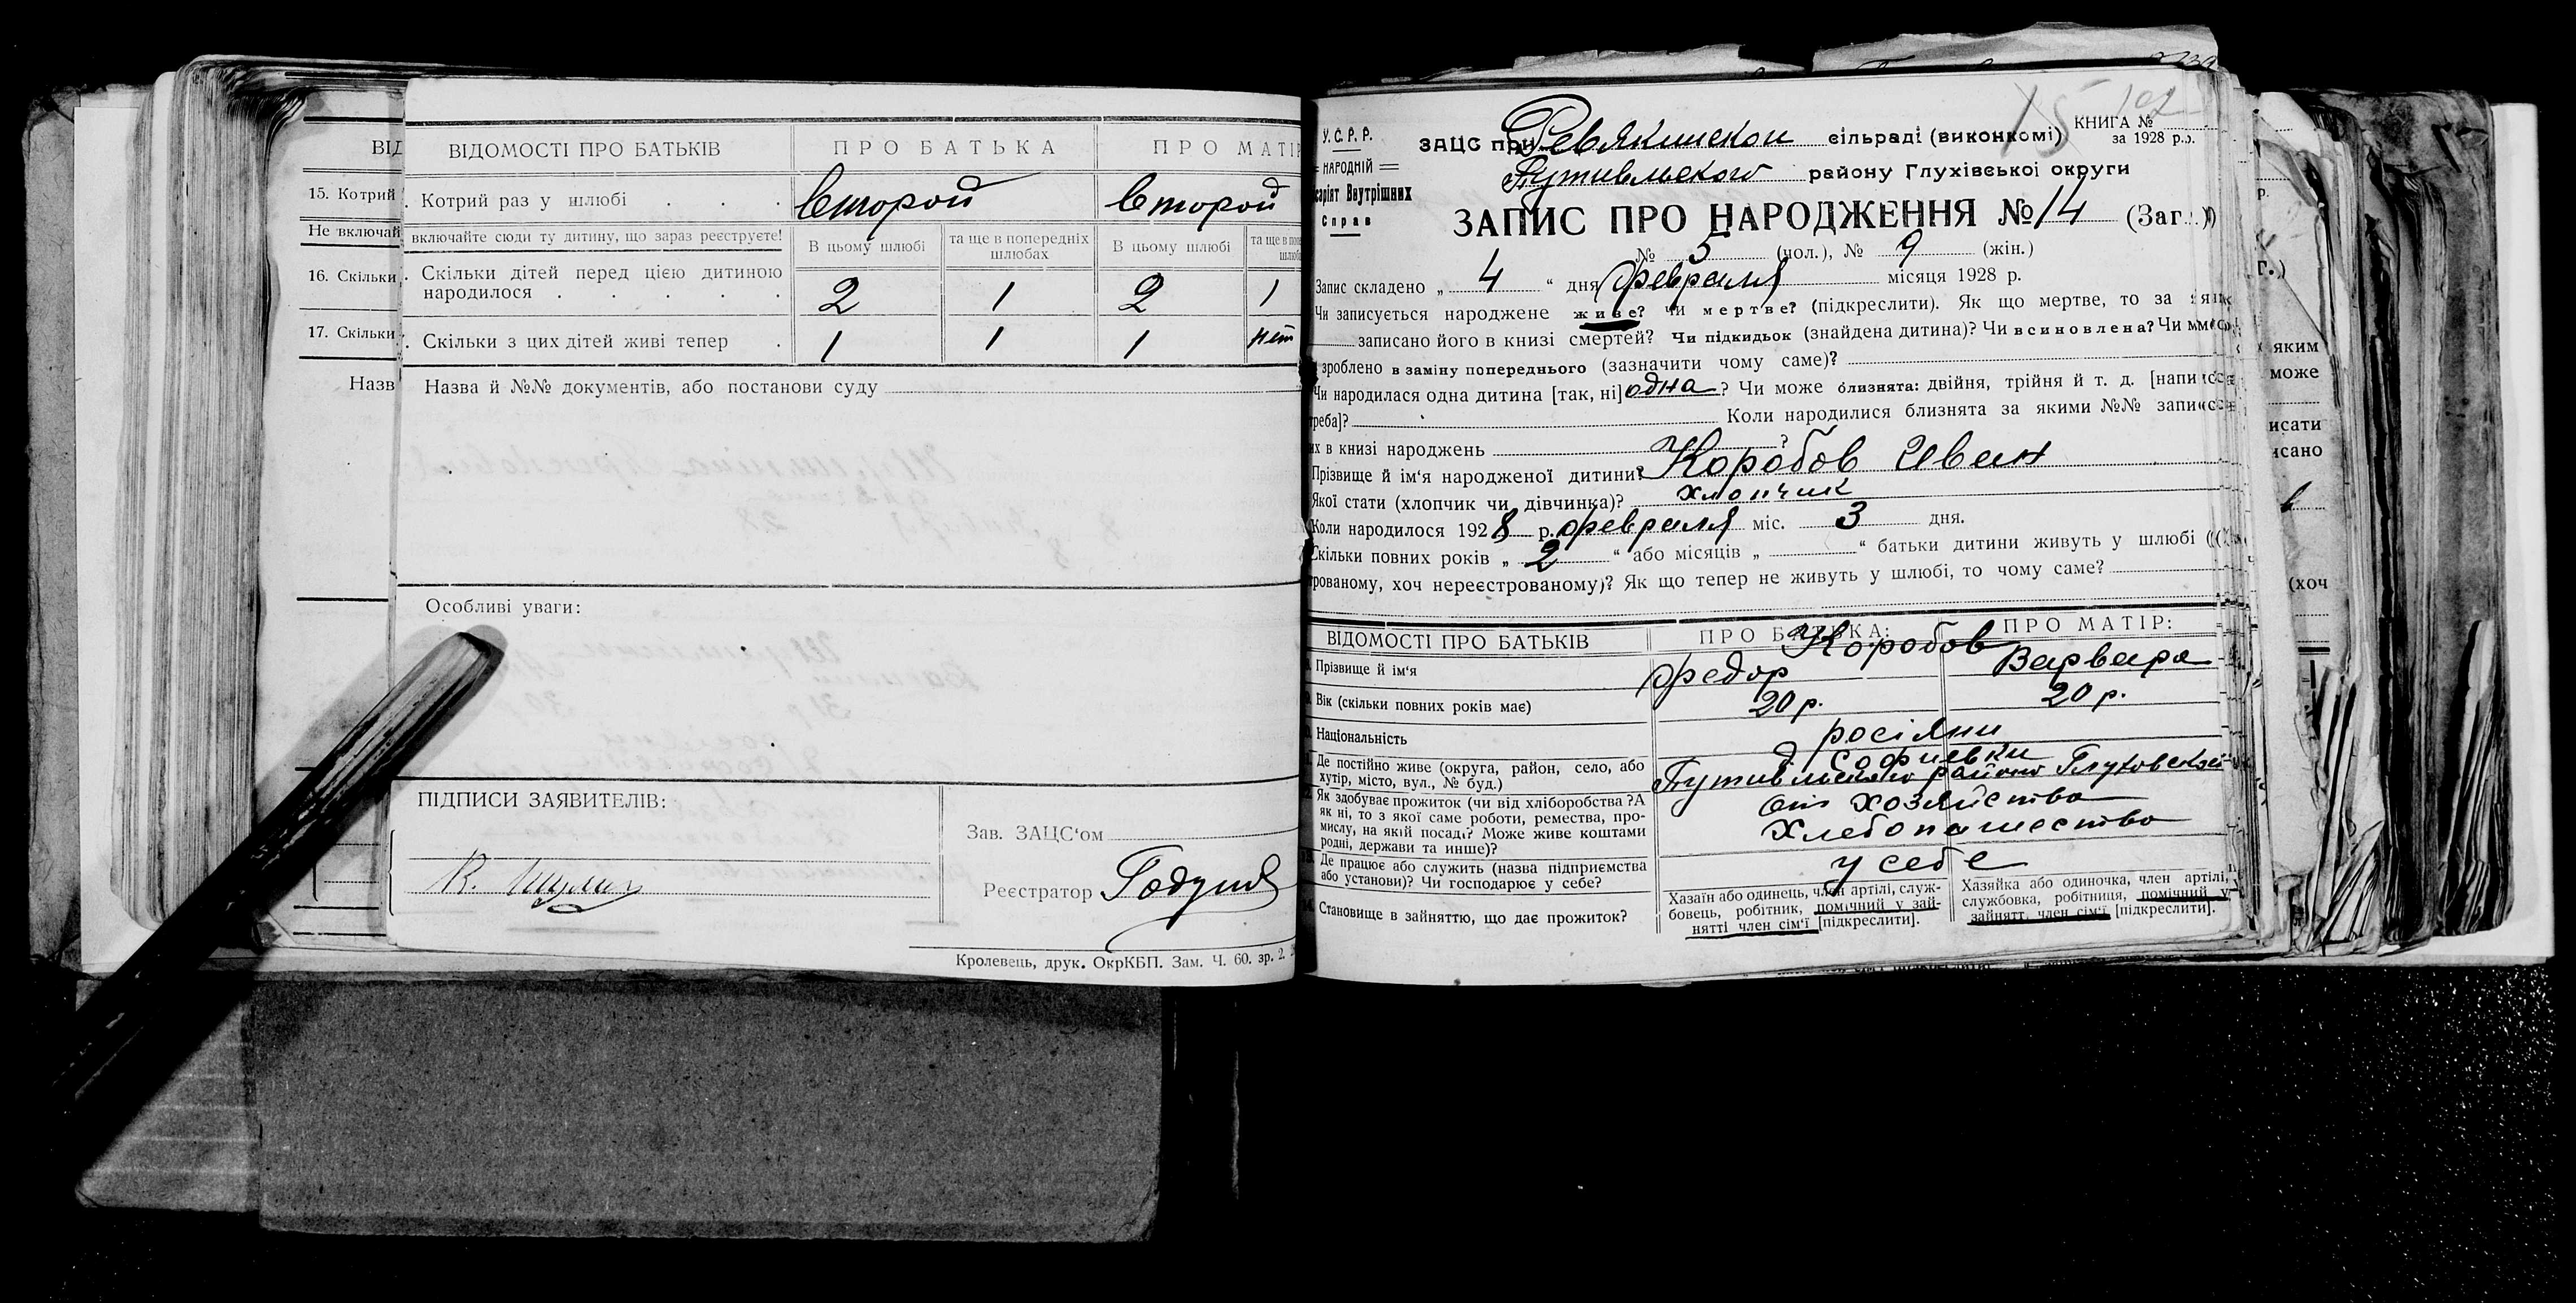 ВІДОМОСТІ ПРО БАТЬКІВ ПРО БАТЬКА ПРО МАТІР
15. Котрий
Котрий раз у шлюбі второй второй
Не включай
включайте сюди ту дитину, що зараз реєструєте!
В цьому шлюбі та ще в попередніх шлюбах В цьому шлюбі та ще в
16. Скільки
Скільки дітей перед цією дитиною
народилося 2 1 2 1
17. Скільки
Скільки з цих дітей живі тепер 1 1 1 нет
Назв
Назва й №№ документів, або постанови суду
Особливі уваги:
ПІДПИСИ ЗАЯВИТЕЛІВ:
Зав. ЗАЦС‘ом
Реєстратор
Кролевець, друк. ОкрКБП. Зам. Ч. 60. зр. 2.
У.С.Р.Р.
НАРОДНІЙ
Внутрішних
Справ
КНИГА №
за 1928 р.
ЗАЦС при Ревякинской сільраді (виконкомі)
Путивльского району Глухівської округи
ЗАПИС ПРО НАРОДЖЕННЯ № 14 (Заг.)
№ 5 (чол.), № 9 (жін.)
Запис складено „ 4 “ дня февраля місяця 1928 р.
Чи записується народжене живе? чи мертве? (підкреслити). Як що мертве, то за
записано його в книзі смертей? Чи підкидьок (знайдена дитина)? Чи всиновлена? Чи
зроблено в заміну попереднього (зазначити чому саме)?
Чи народилася одна дитина [так, ні] одна? Чи може близнята: двійня, трійня й т. д.
треба]? Коли народилися близнята за якими №№
їх в книзі народжень ?
Прізвище й ім‘я народженої дитини? Коробов Иван
Якої стати (хлопчик чи дівчинка)? хлопчик
Коли народилося 1928 р. февраля міс. 3 дня.
Скільки повних років „ 2 “ або місяців „ “ батьки дитини живуть у шлюбі
рованому, хоч нереєстрованому)? Як що тепер не живуть у шлюбі, то чому саме?
ВІДОМОСТІ ПРО БАТЬКІВ ПРО БАТЬКА: ПРО МАТІР:
Коробов
Прізвище й ім‘я Федор Варвара
Вік (скільки повних років має) 20 р. 20 р.
Національність росіяни
Де постійно живе (округа, район, село, або
хутір, місто, вул., № буд.)
д Софиевки
Путивльского района Глуховской
Як здобуває прожиток (чи від хліборобства? А
як ні, то з якої саме роботи, ремества, про-
мислу, на якій посаді? Може живе коштами
родні, держави та инше)?
от хозяйства
Хлебопашества
Де працює або служить (назва підприємства
або установи)? Чи господарює у себе?
у себе
Становище в зайняттю, що дає прожиток?
Хазаїн або одинець, член артілі, служ-
бовець, робітник, помічний у зай-
нятті член сім‘ї [підкреслити].
Хазяйка або одиночка, член артілі,
службовка, робітниця, помічний у
зайнятт. член сім‘ї [підкреслити].
яким
може
исати
исано
в
(хоч